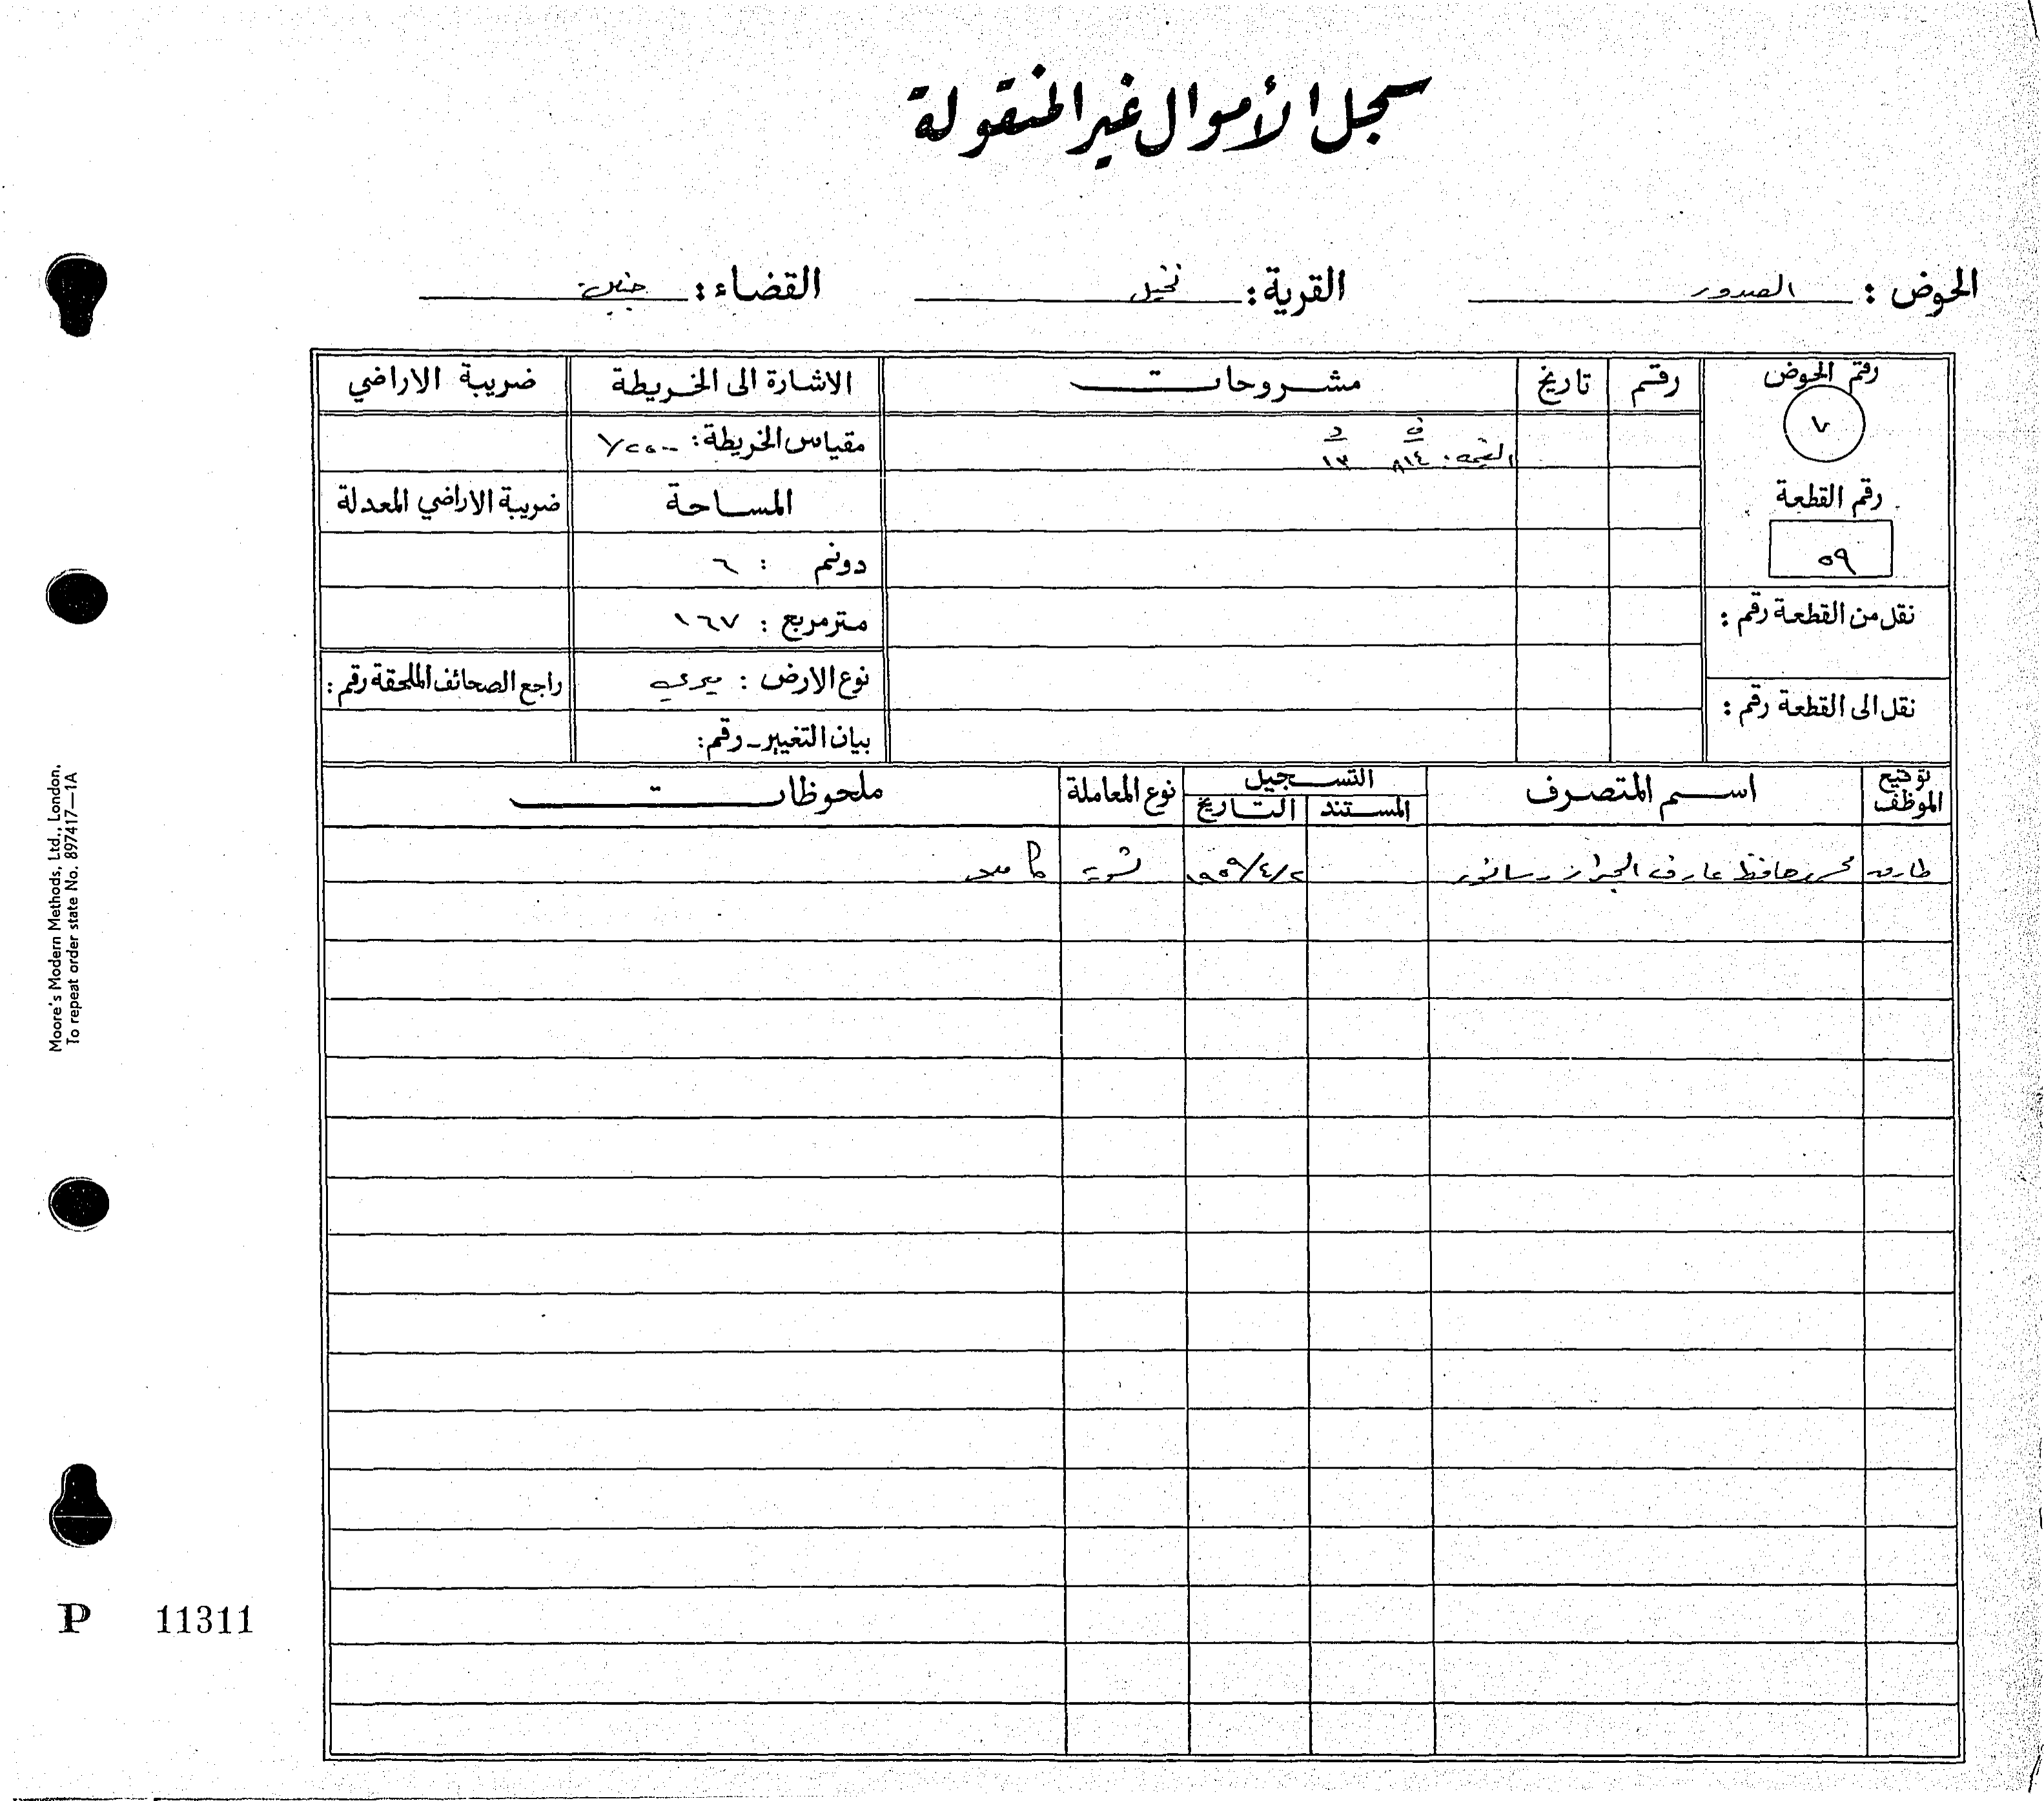 سجل الأموال غير المنقولة
الحوض : الصدور القرية : نخيل القضاء : جنين
رقم الحوض رقم تاريخ مشروحات الاشارة الى الخريطة ضريبة الاراضي
٧
القيمة : ف ٨١٤ د ١٣ مقياس الخريطة :
رقم القطعة المساحة ضريبة الاراضي المعدلة
٥٩ دونم : ٦
نقل من القطعة رقم : متر مربع : ١٦٧
نوع الارض : ميري راجع الصحائف الملحقة رقم :
نقل الى القطعة رقم : بيان التغيير - رقم :
توقيع الموظف اسم المتصرف التسجيل المستند التاريخ نوع المعاملة ملحوظات
طارق حافظ عارف الجرار ٢/٤/١٩٥٩ تسوية كاملا
Moore's Modern Methods, Ltd., London.
To repeat order state No. 897417—1A
P 11311